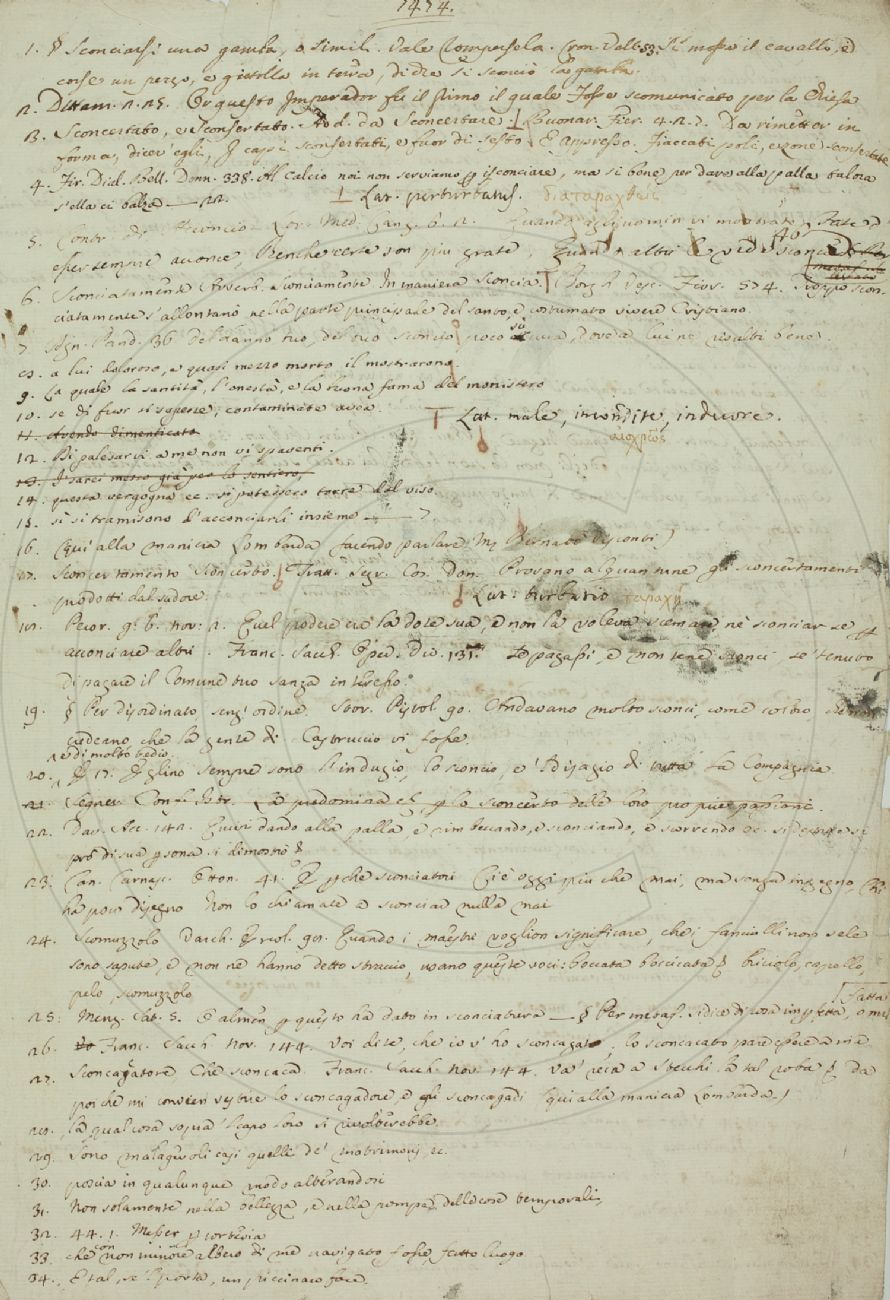 1474.
1. § Sconciarsi una gamba, o simili. Vale Rompersela. Cron. Vell. 53. Si mosse il cavallo, e
corse un pezzo, e gittollo in terra, di che si sconciò la gamba.
2. Dittam. 2. 25. E questo Imperador fu il primo il quale fosse scomunicato per la Chiesa
3. Sconcertato, e Sconsertato. Ad. da Sconcertare Buonar. Fier. 4. 2. 7. Da rimetter in
forma, dicev' egli, capi sconsertati, e fuor di sesto E appresso. Fiaccati sconsertate
4. Fir. Dial. bell. Donn. 338. Al calcio noi non serviamo p isconciare, ma si bene per dare alla palla talora
s'ella ci balza — 22. Lat. perturbatus. διαταραχθείς
5. Contr. di Acconcio Lor. Med. canz. 6. 2. Quando gli uomin vi mostrate Fate d'
esser sempre acconce, Benchè certe son più grate, Quand' altri le vede sconce
6. Sconciatamente Avverb. Sconciamente In maniera sconcia. Borgh. Vesc. Fior. 574. Troppo scon-
ciatamente s'allontanò nella parte principale del santo, e costumato vivere Cristiano.
7. Agn. Pand. 36 del danno tuo, del tuo sconcio poco si cura, dove a lui ne risulti bene.
8. a lui doloroso, e quasi mezzo morto il mostrarono.
9. La quale la santità, l'onestà, e la buona fama del monistero
10. se di fuor si sapesse, contaminate avea. Lat. male, incondite, indecore.
αἰσχρῶς
11. Avendo dimenticato
12. Il palesarvi a me non vi spaventi.
13. I' sarei messo già per lo sentiero,
14. questa vergogna ec. si potessero torre dal viso
15. si si tramisono d'acconciarli insieme — 7.
16. (Qui alla maniera Lombarda facendo parlare M. Bernabò Visconti)
17. Sconcertamento Sconcerto. Tratt. segr. cos. Don. Provengono alquantune gli sconcertamenti
prodotti dal sudore. Lat. turbatio ταραχή
18. Pecor. g. 6. nov. 2. E'l podere era la dote sua, e non la voleva scemare, nè sconciar se p
acconciare altri. Franc. Sacch. Op. div. 131. Se pagassi, e non tene sconci se' tenuto
di pagare il Comune tuo sanza interesso.
19. § Per disordinato, senz' ordine. Stor. Pistol. 90. Andavano molto sconci, come coloro che non
credeano che la gente di Castruccio vi fosse.
e di molto tedio
20. Eglino sempre sono l'indugio, lo sconcio, e 'l disagio di tutta la Compagnia
21. Segner. Conf. Istr. La predomina p lo sconcerto delle loro proprie passioni.
22. Dav. Acc. 142. Quivi dando alla palla, e rimbeccando, e sconciando, e scorrendo ec. si
prò di sua psona si dimostrò
23. Can. Carnasc. Otton. 41. E pchè sconciatori Ci è oggi più che mai, ma senza ingegno Chi
ha poco disegno Non lo chiamate a sconciar nulla mai
24. Scomuzzolo Varch. Ercol. 90. Quando i maestri voglion significare, che i fanciulli non se le
sono sapute, e non ne hanno detto straccio, usano queste voci: boccata boccicata, briciolo, capello,
pelo, scomuzzolo
25. Menz. Sat. 5. E almen p questo ha dato in sconciatura — § Per metaf. si dice di cosa impfetta, o mal fatta
26. Franc. Sacch. nov. 144. Voi dite, che io v' ho sconcagato, lo sconcacato pare essere a me
27. Sconcagatore Che sconcaca. Franc. Sacch. nov. 144. Va' reca a Stecchi la tal roba Da
poi che mi convien vestire lo sconcagadore, e gli sconcagadi (qui alla maniera Lombarda.)
28. la qual cosa sopra 'l capo loro si rivolterebbe
29. Sono malagevoli casi quelli de' matrimoni, ec.
30. poscia in qualunque modo alterandosi
31. Non solamente nella bellezza, e nella pompa delle cose temporali,
32. 44. 1. Messer p cortesia
33. che con non minore albero di me navigato fosse, fatto luogo
34. E tal, se 'l porta, un piccinaco face.